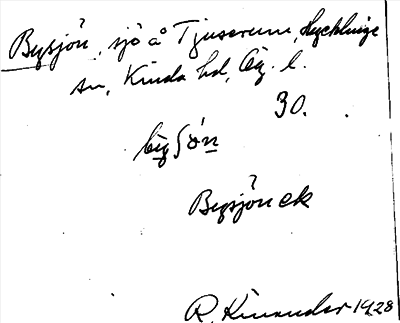 Bysjön, sjö å Tjuserum, Kycklinge
sn, Kinda hd, Ög. l.
30.
Bysjön ek
R. Kinander 1928